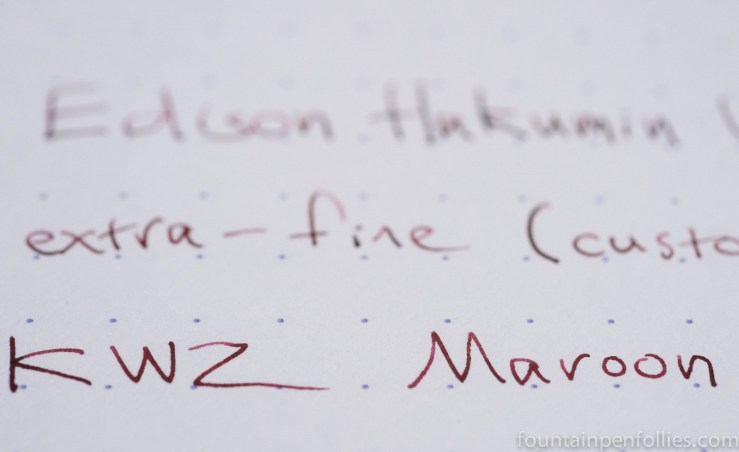 Edison Hakumin (
extra-fine (custo
KWZ Maroon
fountainpenfollies.com